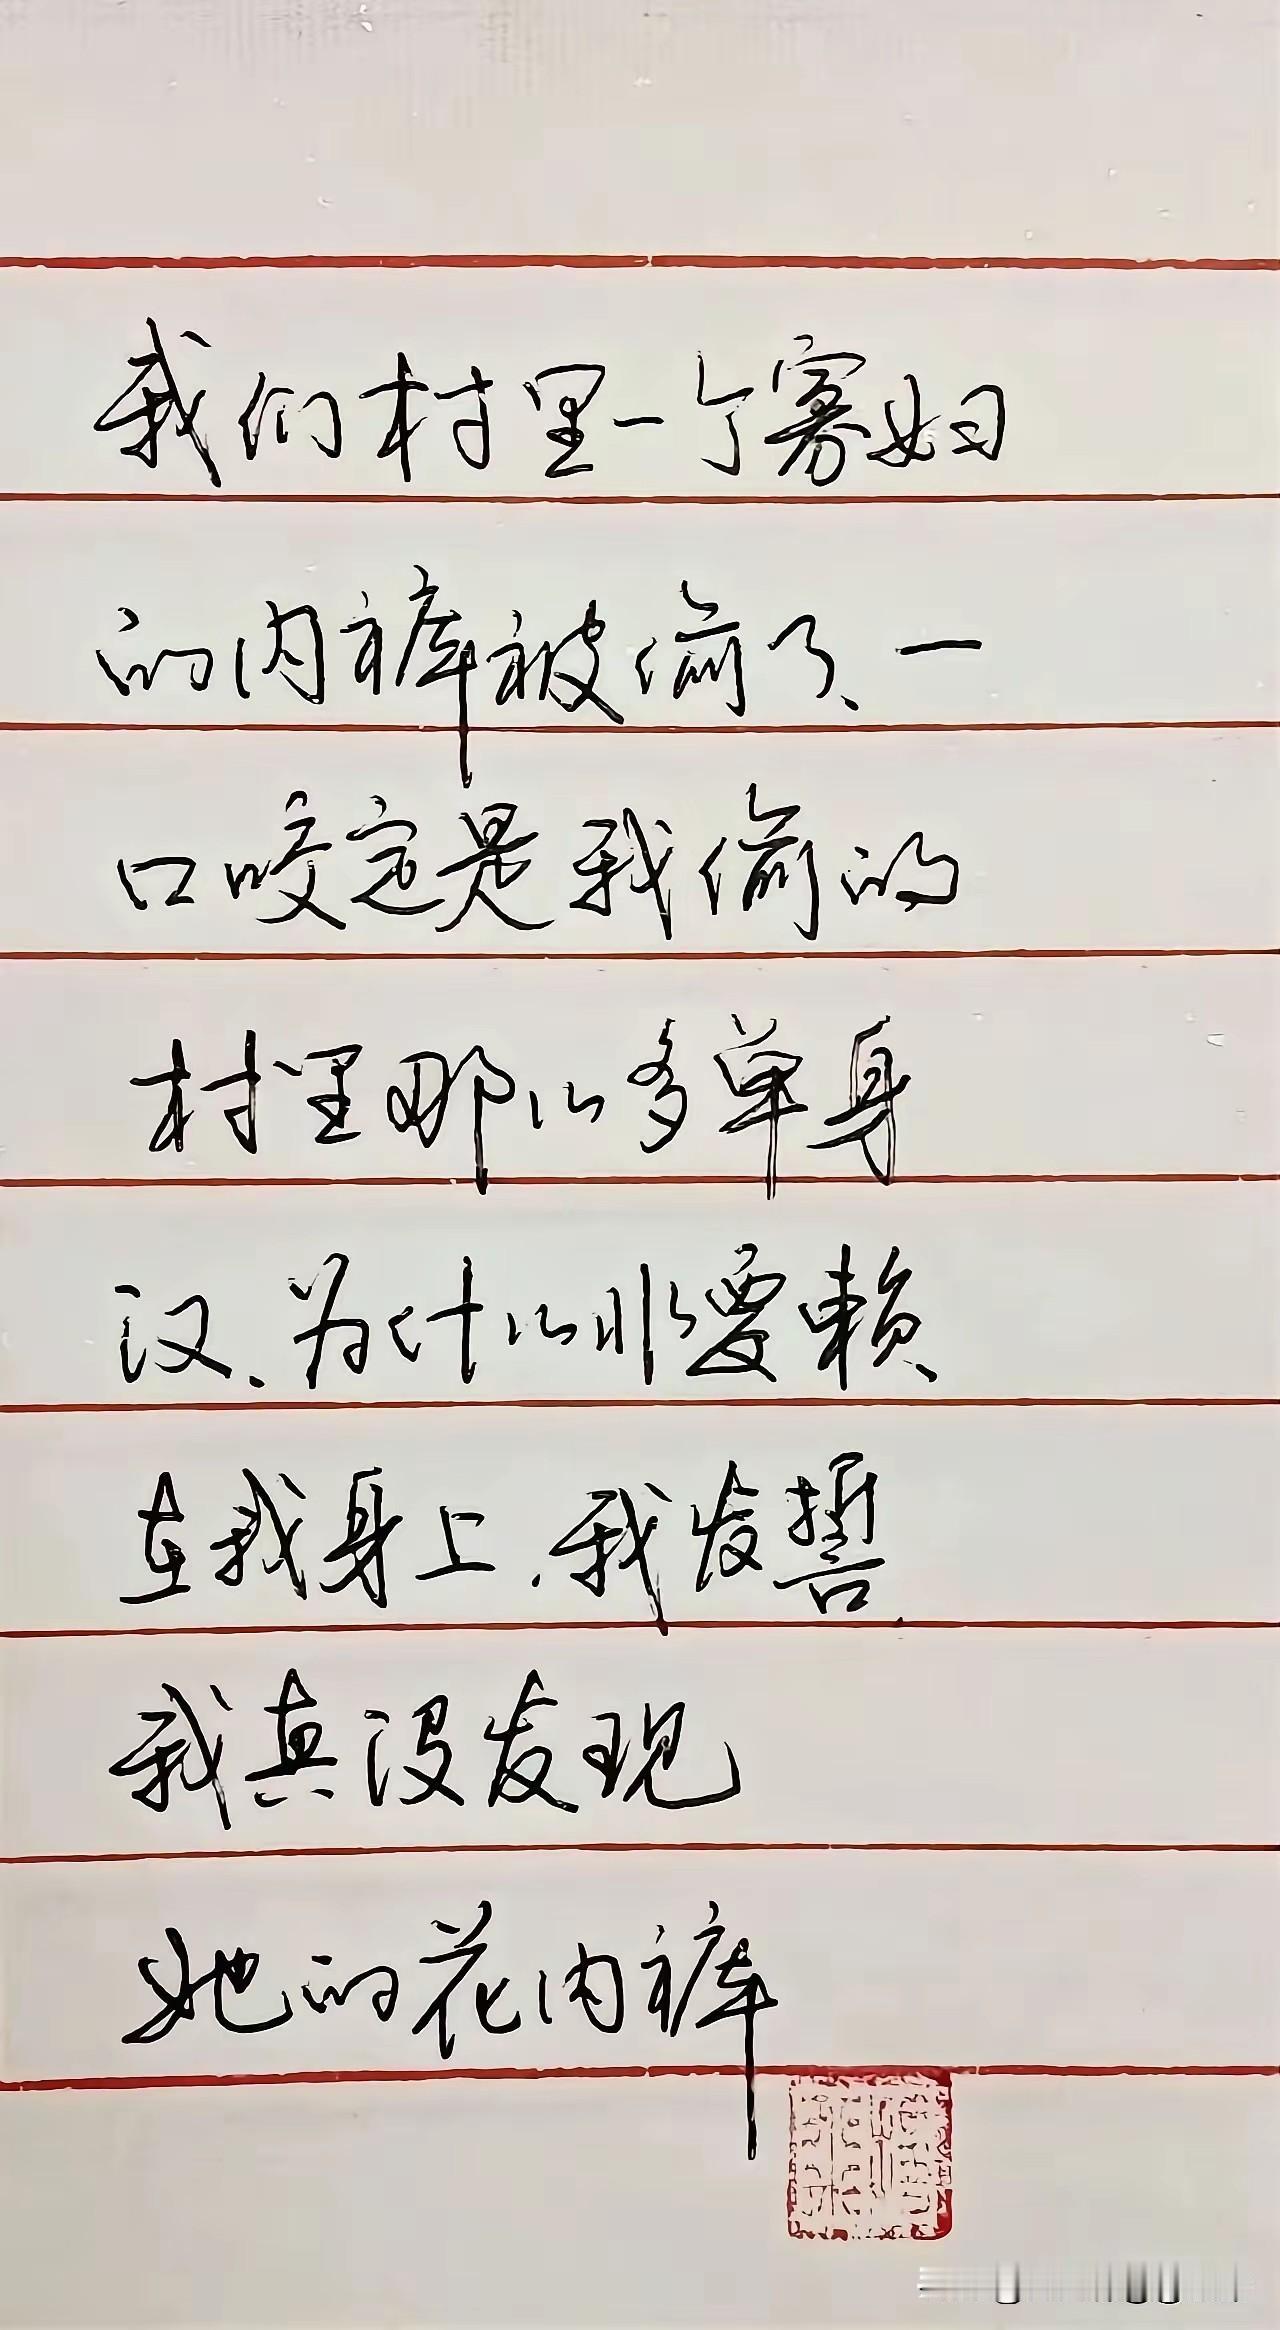 我们村里一个寡妇
的内裤被偷了、一
口咬定是我偷的
村里那么多单身
汉、为什么非要赖
在我身上.我发誓
我真没发现
她的花内裤